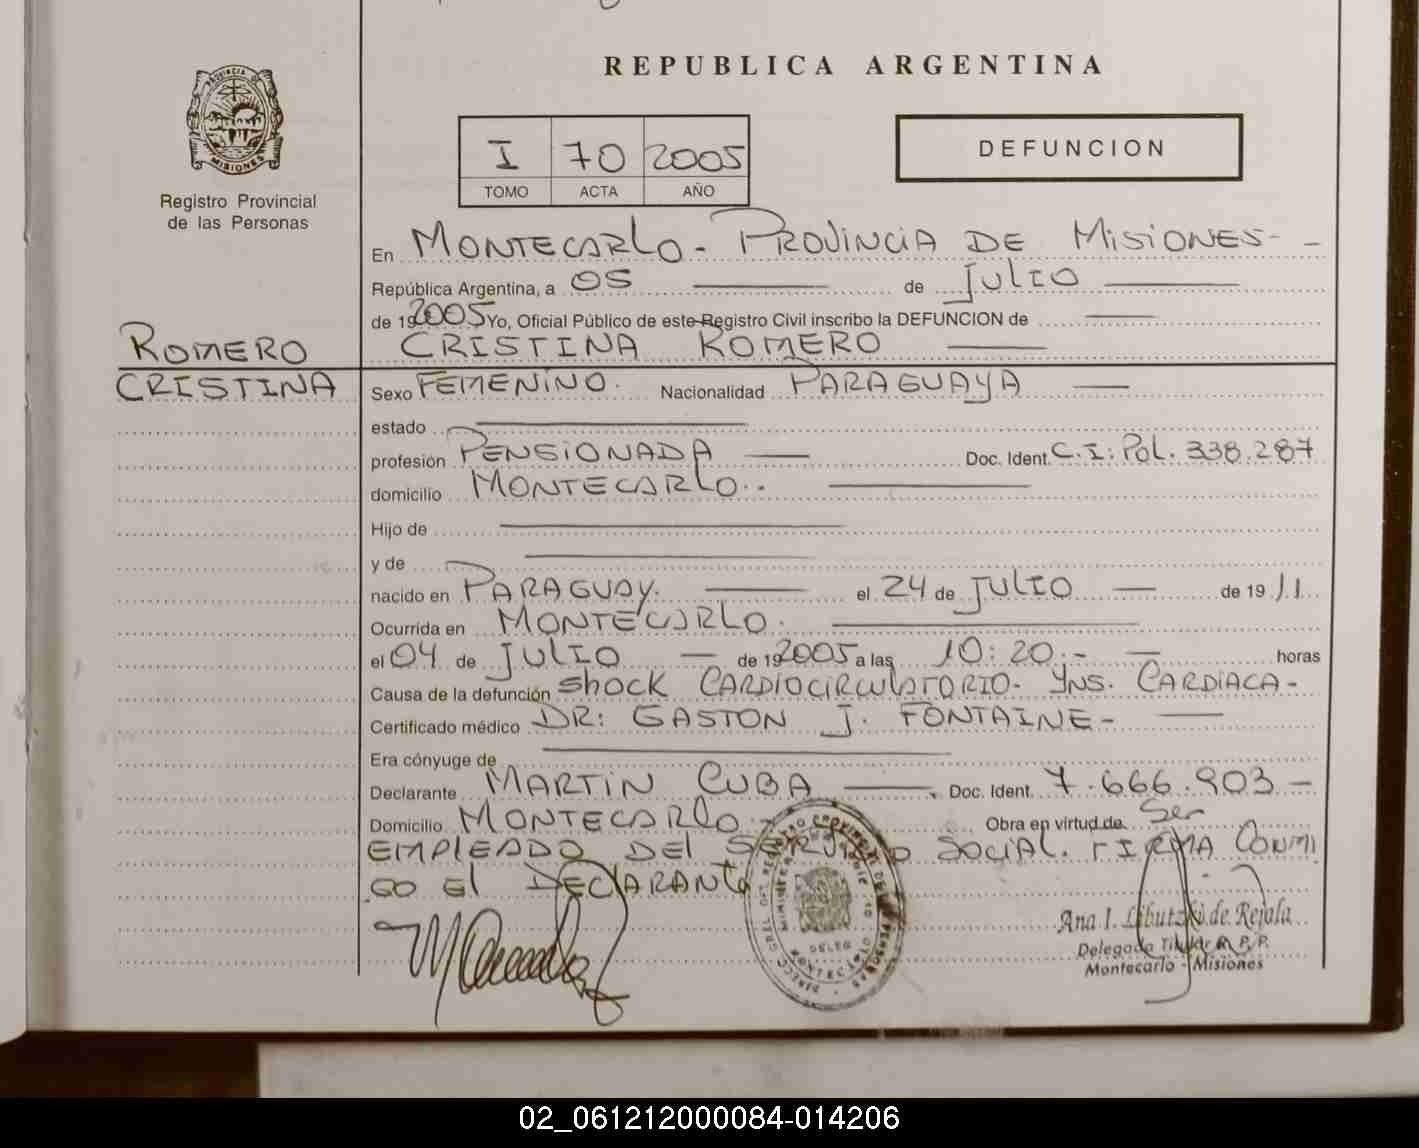 REPUBLICA ARGENTINA
PROVINCIA DE
MISIONES
Registro Provincial
de las Personas
I 70 2005
TOMO ACTA AÑO
DEFUNCION
En MONTECARLO - PROVINCIA DE MISIONES - -
República Argentina, a 05 de JULIO
de 192005 Yo, Oficial Público de este Registro Civil inscribo la DEFUNCION de
CRISTINA ROMERO
ROMERO
CRISTINA
Sexo FEMENINO. Nacionalidad PARAGUAYA
estado
profesión PENSIONADA Doc. Ident. C.I: Pol. 338.287
domicilio MONTECARLO..
Hijo de
y de
nacido en PARAGUAY. el 24 de JULIO de 19 11
Ocurrida en MONTECARLO.
el 04 de JULIO de 192005 a las 10:20.- horas
Causa de la defunción Shock CARDIOCIRCULATORIO- YNS. CARDIACA -
Certificado médico DR: GASTON J. FONTAINE -
Era cónyuge de
Declarante MARTIN CUBA Doc. Ident. 7.666.903 -
Domicilio MONTECARLO - Obra en virtud de Ser
EMPLEADO DEL SERVICIO SOCIAL. FIRMA CONMI
GO El DECLARANTE
Ana I. Libutzki de Rejala
Delegada Titular R. P. P.
Montecarlo - Misiones
02_061212000084-014206